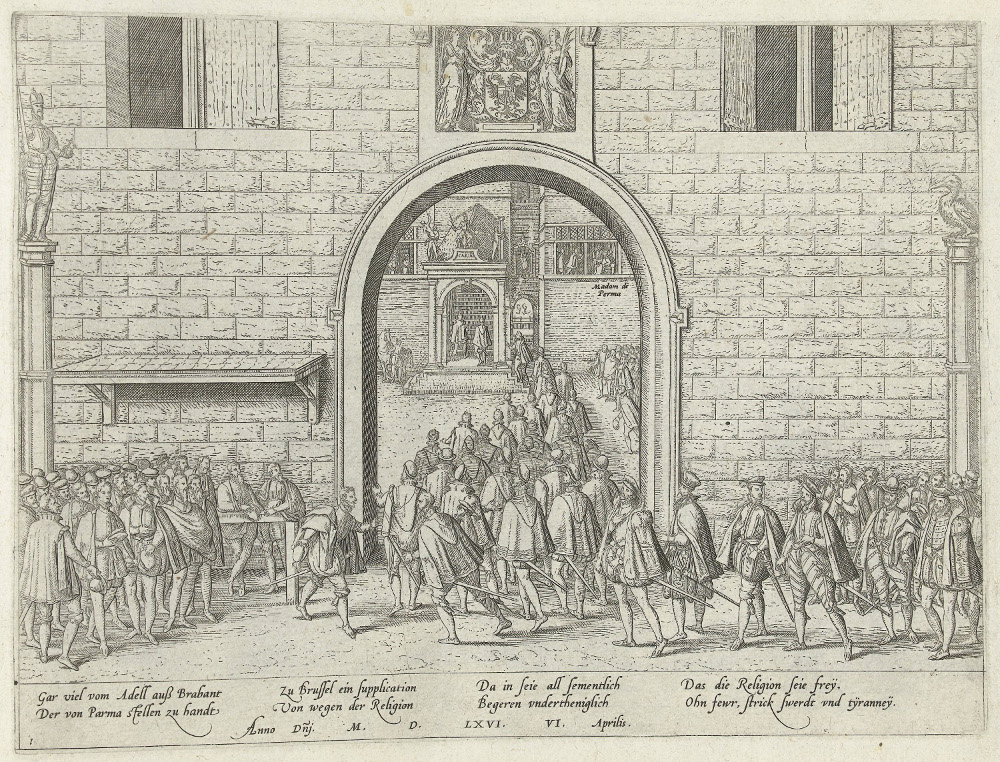 Madam de
Parma
Gar viel vom Adell auß Brabant
Der von Parma stellen zu handt
Zu Brussel ein supplication
Von wegen der Religion
Da in seie all sementlich
Begeren vndertheniglich
Das die Religion seie freÿ.
Ohn fewr, strick swerdt vnd tÿranneÿ.
Anno Dñj. M. D. LXVI. VI. Aprilis.
1